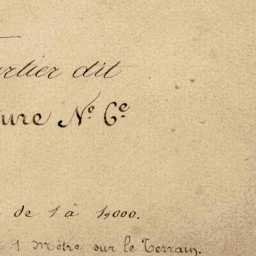 rtier dit
ure N.º 6.e
de 1 à 1,000.
1 Mètre sur le Terrain.